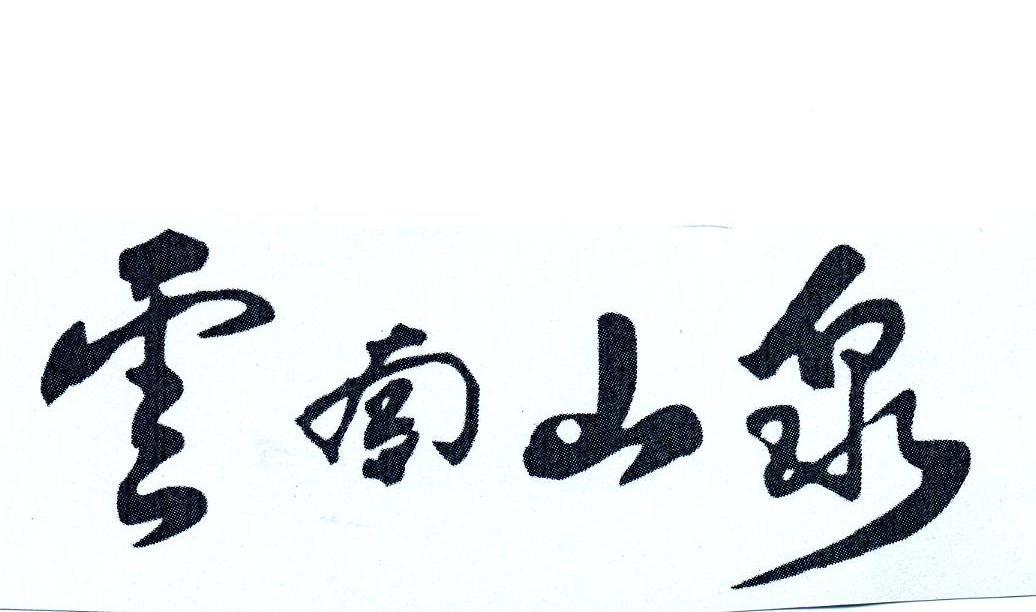 雲南山泉